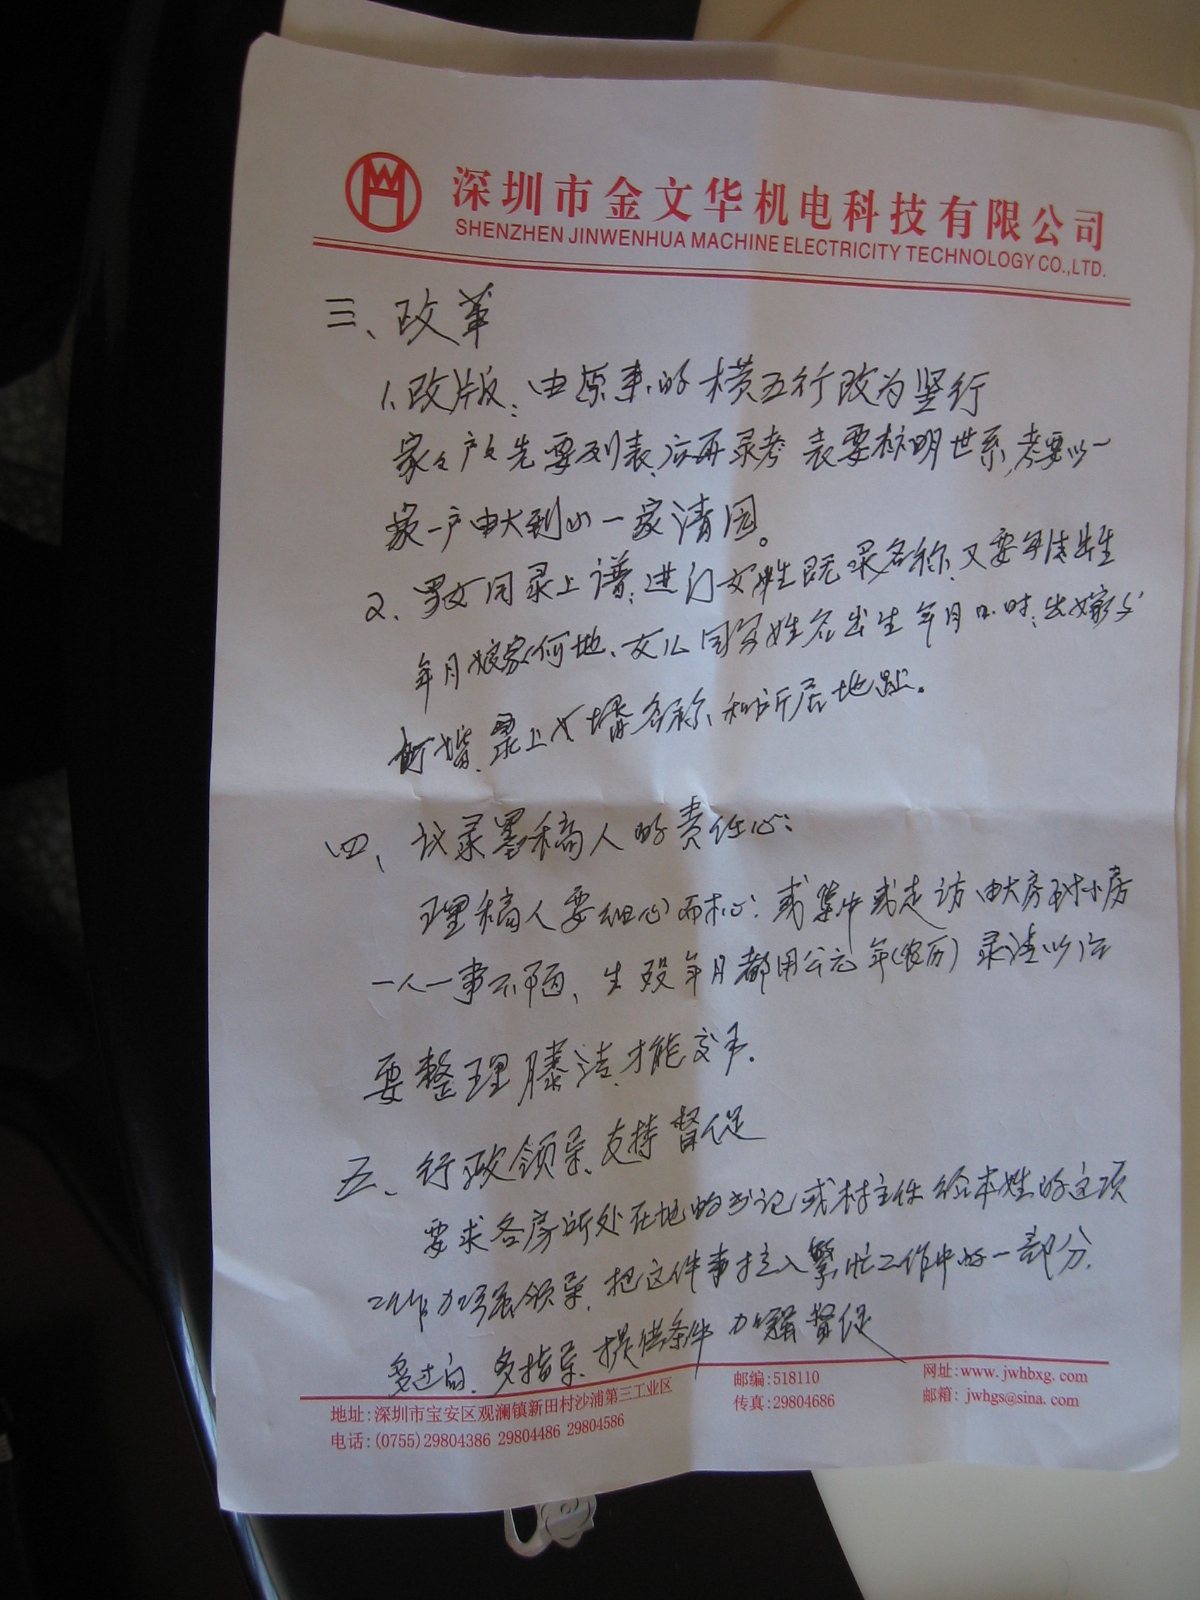 深圳市金文华机电科技有限公司
SHENZHEN JINWENHUA MACHINE ELECTRICITY TECHNOLOGY CO.,LTD.
三、改革
1.改版:由原来的横五行改为竖行
家々户々先要列表,后再录考 表要标明世系,考要以一
家一户由大到小一家清因。
2、男女同录上谱:进门女性既录名称,又要写清出生
年月娘家何地、女儿同写姓名出生年月日时;出嫁
婿,录上女婿名称和所居地址。
四、议录墨稿人的责任心:
理稿人要细心而耐心:或集中或走访由大房到小房
一人一事不陋、生殁年月都用公元年(农历)录清以后
要整理謄清,才能交手.
五、行政领导、支持督促
要求各房所处在地的书记或村主任给本姓的这项
工作加强领导,把这件事挂入繁忙工作中的一部分.
多过问、多指导、提供条件 加强督促
地址:深圳市宝安区观澜镇新田村沙浦第三工业区
电话:(0755)29804386 29804486 29804586
邮编:518110
传真:29804686
网址:www.jwhbxg.com
邮箱:jwhgs@sina.com